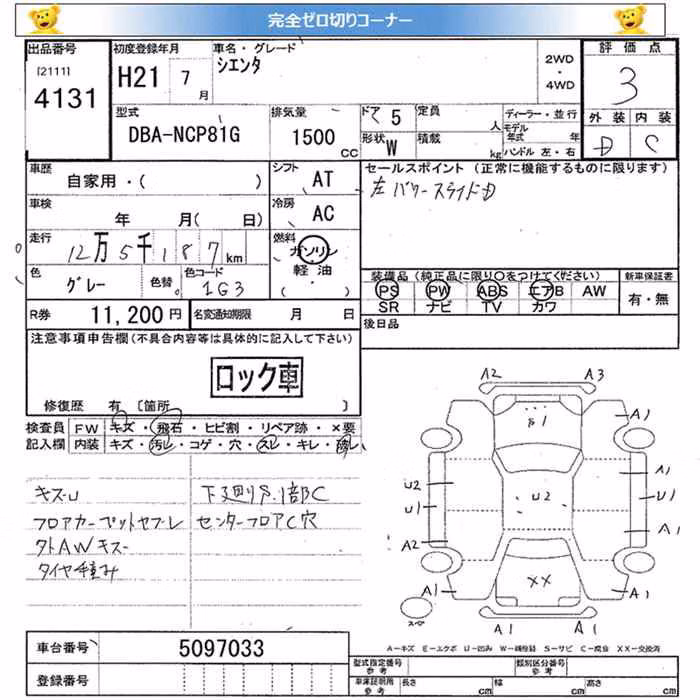 完全ゼロ切りコーナー
出品番号
[2111]
4131
初度登録年月
H21 7月
車名・グレード
シエンタ
2WD
・
4WD
評価点
3
型式
DBA-NCP81G
排気量
1500 CC
ドア 5
定員 人
形状 W
積載 kg
ディーラー・並行
モデル年式 年
ハンドル 左・右
外装 内装
D C
車歴
自家用・( )
シフト
AT
セールスポイント (正常に機能するものに限ります)
左パワースライドD
車検
年 月( 日)
冷房
AC
走行
12万5千187km
燃料
ガソリン
軽油
( ・ )
色
グレー
色替
色コード
1G3
装備品 (純正品に限り○をつけてください)
PS PW ABS エアB AW
SR ナビ TV カワ
新車保証書
有・無
R券 11,200円
名変通知期限 月 日
後日品
注意事項申告欄(不具合内容等は具体的に記入して下さい)
ロック車
修復歴 有 [箇所 ]
検査員
記入欄
FW キズ・飛石・ヒビ割・リペア跡・×要
内装 キズ・汚レ・コゲ・穴・スレ・キレ・破レ
キズU
フロアカーペットヤブレ
タイヤ積み
センターフロアC穴
A2 A3
A1
A1
U2
U1
U2
U1
A2
A1
XX
A1 A1
A1 A1
スペ
A－キズ E－エクボ U－凹み W－補修跡 S－サビ C－腐食 XX－交換済
車台番号 5097033
登録番号
型式指定番号
参考
類別区分番号
参考
車庫証明用
参考
長さ cm 幅 cm 高さ cm